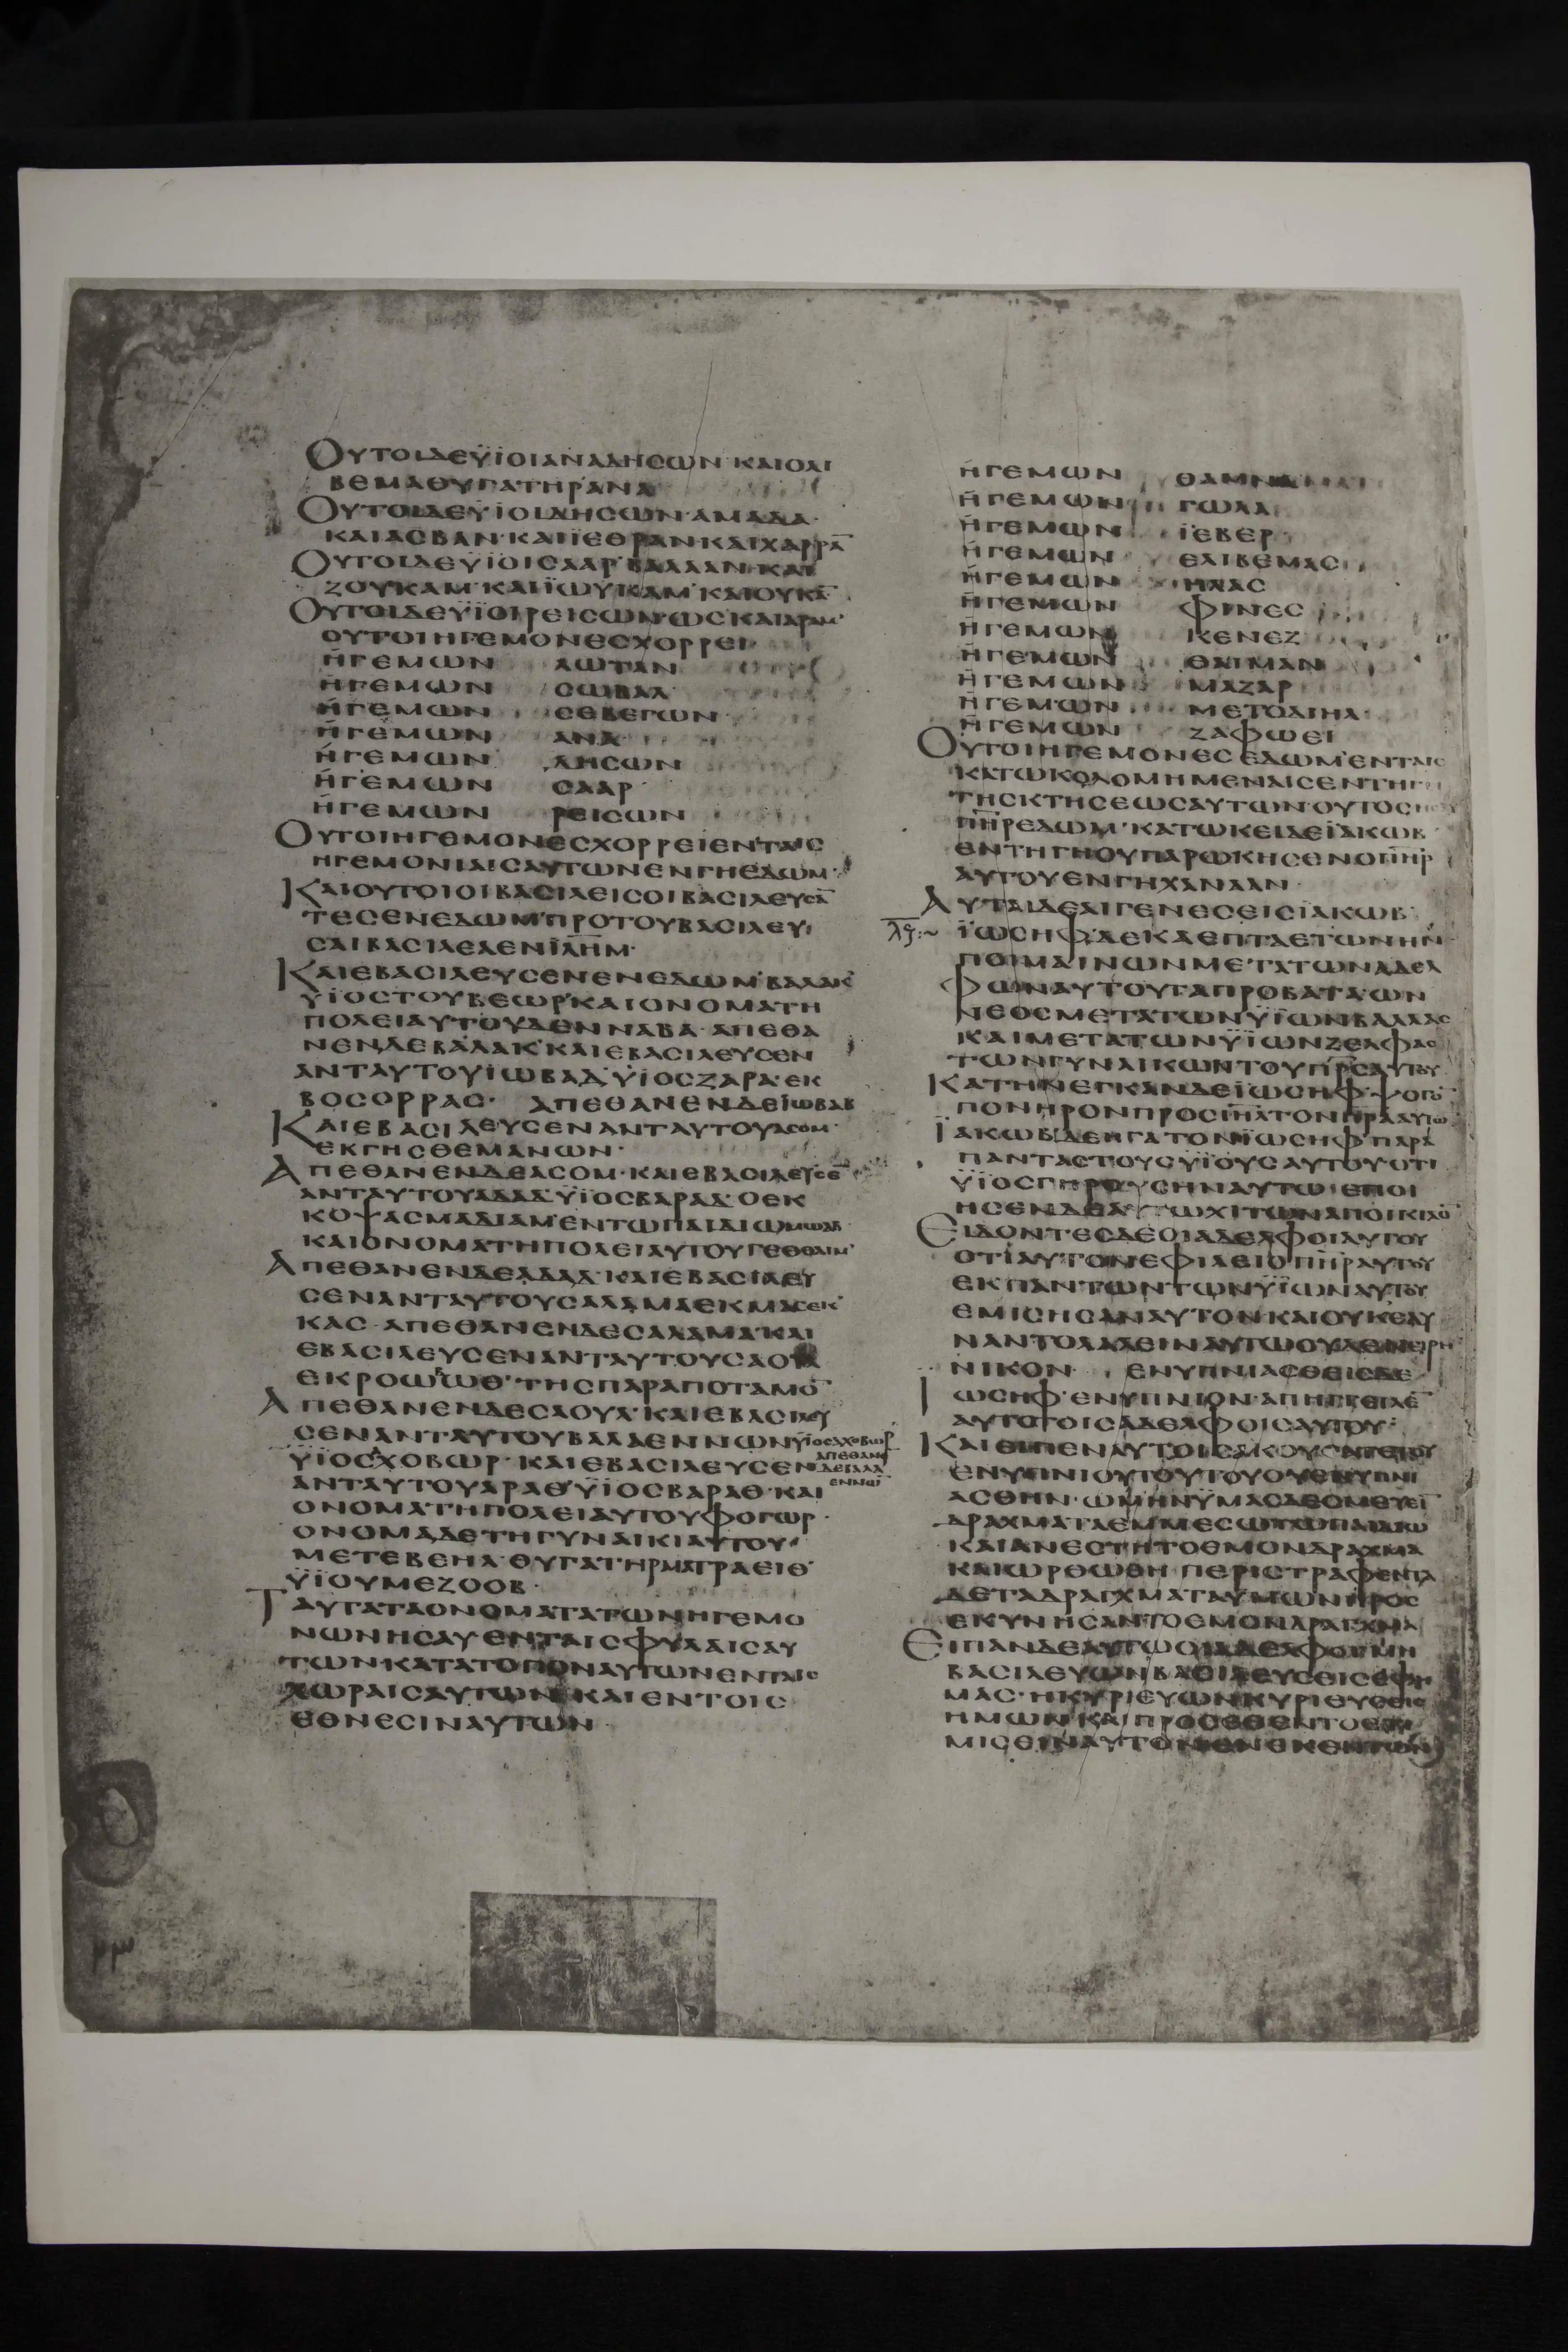 ΟΥΤΟΙΔΕΫΙΟΙΑΝΑΔΗCΩΝ·ΚΑΙΟΛΙ
ΒΕΜΑΘΥΓΑΤΗΡΑΝΑ
ΟΥΤΟΙΔΕΫΙΟΙΔΗCΩΝ·ΑΜΑΔΑ·
ΚΑΙΑCΒΑΝ·ΚΑΙΪΕΘΡΑΝ·ΚΑΙΧΑΡΡΑ̅
ΟΥΤΟΙΔΕΫΙΟΙCΑΑΡ·ΒΑΛΑΑΝ·ΚΑΙ
ΖΟΥΚΑΜ·ΚΑΙΪΩΫΚΑΜ·ΚΑΙΟΥΚΑ̅
ΟΥΤΟΙΔΕΫΙΟΙΡΕΙCΩΝ·ΩC·ΚΑΙΑΡΑΜ·
ΟΥΤΟΙΗΓΕΜΟΝΕCΧΟΡΡΕΙ·
ΗΓΕΜΩΝ ΛΩΤΑΝ
ΗΓΕΜΩΝ CΩΒΑΛ
ΗΓΕΜΩΝ CΕΒΕΓΩΝ
ΗΓΕΜΩΝ ΑΝΑ
ΗΓΕΜΩΝ ΔΗCΩΝ
ΗΓΕΜΩΝ CΑΑΡ
ΗΓΕΜΩΝ ΡΕΙCΩΝ
ΟΥΤΟΙΗΓΕΜΟΝΕCΧΟΡΡΕΙΕΝΤΑΙC
ΗΓΕΜΟΝΙΑΙCΑΥΤΩΝΕΝΓΗΕΔΩΜ·
ΚΑΙΟΥΤΟΙΟΙΒΑCΙΛΕΙCΟΙΒΑCΙΛΕΥCΑ̅
ΤΕCΕΝΕΔΩΜ·ΠΡΟΤΟΥΒΑCΙΛΕΥ
CΑΙΒΑCΙΛΕΑΕΝΙ̅Λ̅Η̅Μ·
ΚΑΙΕΒΑCΙΛΕΥCΕΝΕΝΕΔΩΜ·ΒΑΛΑΚ
ΫΙΟCΤΟΥΒΕΩΡ·ΚΑΙΟΝΟΜΑΤΗ
ΠΟΛΕΙΑΥΤΟΥΔΕΝΝΑΒΑ·ΑΠΕΘΑ
ΝΕΝΔΕΒΑΛΑΚ·ΚΑΙΕΒΑCΙΛΕΥCΕΝ
ΑΝΤΑΥΤΟΥΙΩΒΑΔ·ΫΙΟCΖΑΡΑ·ΕΚ
ΒΟCΟΡΡΑC· ΑΠΕΘΑΝΕΝΔΕΪΩΒΑΒ
ΚΑΙΕΒΑCΙΛΕΥCΕΝΑΝΤΑΥΤΟΥΑCΟΜ·
ΕΚΓΗCΘΕΜΑΝΩΝ·
ΑΠΕΘΑΝΕΝΔΕΑCΟΜ·ΚΑΙΕΒΑCΙΛΕΥCΕ̅
ΑΝΤΑΥΤΟΥΑΔΑΔ·ΫΙΟCΒΑΡΑΔ·ΟΕΚ
ΚΟΨΑCΜΑΔΙΑΜ·ΕΝΤΩΠΑΙΔΙΩΜΩΑΒ
ΚΑΙΟΝΟΜΑΤΗΠΟΛΕΙΑΥΤΟΥΓΕΘΘΑΙΜ·
ΑΠΕΘΑΝΕΝΔΕΑΔΑΔ·ΚΑΙΕΒΑCΙΛΕΥ
CΕΝΑΝΤΑΥΤΟΥCΑΛΑΜΑΕΚΜΑCΕΚ
ΚΑC·ΑΠΕΘΑΝΕΝΔΕCΑΛΑΜΑ·ΚΑΙ
ΕΒΑCΙΛΕΥCΕΝΑΝΤΑΥΤΟΥCΑΟΥΛ
ΕΚΡΟΩΒΩΘ·ΤΗCΠΑΡΑΠΟΤΑΜΟ̅
ΑΠΕΘΑΝΕΝΔΕCΑΟΥΛ·ΚΑΙΕΒΑCΙΛΕΥ
CΕΝΑΝΤΑΥΤΟΥΒΑΛΑΕΝΝΩΝΫΙΟCΑΧΟΒΩΡ
ΫΙΟCΧΟΒΩΡ·ΚΑΙΕΒΑCΙΛΕΥCΕΝ
ΑΠΕΘΑΝΕ
ΔΕΒΑΛΑ
ΕΝΝΩ̅
ΑΝΤΑΥΤΟΥΑΡΑΘ·ΫΙΟCΒΑΡΑΘ·ΚΑΙ
ΟΝΟΜΑΤΗΠΟΛΕΙΑΥΤΟΥΦΟΓΩΡ·
ΟΝΟΜΑΔΕΤΗΓΥΝΑΙΚΙΑΥΤΟΥ·
ΜΕΤΕΒΕΗΛ·ΘΥΓΑΤΗΡΜΑΤΡΑΕΙΘ·
ΫΙΟΥΜΕΖΟΟΒ·
ΤΑΥΤΑΤΑΟΝΟΜΑΤΑΤΩΝΗΓΕΜΟ
ΝΩΝΗCΑΥ·ΕΝΤΑΙCΦΥΛΑΙCΑΥ
ΤΩΝ·ΚΑΤΑΤΟΠΟΝΑΥΤΩΝΕΝΤΑΙC
ΧΩΡΑΙCΑΥΤΩΝ·ΚΑΙΕΝΤΟΙC
ΕΘΝΕCΙΝΑΥΤΩΝ
ΗΓΕΜΩΝ ΘΑΜΝΑ
ΗΓΕΜΩΝ ΓΩΛΑ
ΗΓΕΜΩΝ ΪΕΒΕΡ
ΗΓΕΜΩΝ ΕΛΙΒΕΜΑC
ΗΓΕΜΩΝ ΗΛΑC
ΗΓΕΜΩΝ ΦΙΝΕC
ΗΓΕΜΩΝ ΚΕΝΕΖ
ΗΓΕΜΩΝ ΘΑΙΜΑΝ
ΗΓΕΜΩΝ ΜΑΖΑΡ
ΗΓΕΜΩΝ ΜΕΤΟΔΙΗΛ·
ΗΓΕΜΩΝ ΖΑΦΩΕΙ
ΟΥΤΟΙΗΓΕΜΟΝΕCΕΔΩΜ·ΕΝΤΑΙC
ΚΑΤΩΚΟΔΟΜΗΜΕΝΑΙCΕΝΤΗΓΗ
ΤΗCΚΤΗCΕΩCΑΥΤΩΝ·ΟΥΤΟC
Π̅Η̅Ρ̅ΕΔΩΜ·ΚΑΤΩΚΕΙΔΕΪΑΚΩΒ·
ΕΝΤΗΓΗΟΥΠΑΡΩΚΗCΕΝΟΠ̅Η̅Ρ̅
ΑΥΤΟΥΕΝΓΗΧΑΝΑΑΝ·
ΑΥΤΑΙΔΕΑΙΓΕΝΕCΕΙCΪΑΚΩΒ·
ΪΩCΗΦΔΕΚΑΕΠΤΑΕΤΩΝΗΝ·
ΠΟΙΜΑΙΝΩΝΜΕΤΑΤΩΝΑΔΕΛ
ΦΩΝΑΥΤΟΥΤΑΠΡΟΒΑΤΑ·ΩΝ
ΝΕΟC·ΜΕΤΑΤΩΝΫΙΩΝΒΑΛΛΑC
ΚΑΙΜΕΤΑΤΩΝΫΙΩΝΖΕΛΦΑC
ΤΩΝΓΥΝΑΙΚΩΝΤΟΥΠ̅Ρ̅C̅ΑΥΤΟΥ·
ΚΑΤΗΝΕΓΚΑΝΔΕΪΩCΗΦΨΟΓΟ̅
ΠΟΝΗΡΟΝΠΡΟCΙ̅Η̅Λ̅ΤΟΝΠ̅Ρ̅Α̅ΑΥΤΩ
ΪΑΚΩΒΔΕΗΓΑΤΟΝΪΩCΗΦΠΑΡΑ
ΠΑΝΤΑCΤΟΥCΫΙΟΥCΑΥΤΟΥ·ΟΤΙ
ΫΙΟCΓΗΡΟΥCΗΝΑΥΤΩ·ΕΠΟΙ
ΗCΕΝΔΕΑΥΤΩΧΙΤΩΝΑΠΟΙΚΙΛΟ̅
ΕΙΔΟΝΤΕCΔΕΟΙΑΔΕΛΦΟΙΑΥΤΟΥ
ΟΤΙΑΥΤΟΝΕΦΙΛΕΙΟΠ̅Η̅Ρ̅ΑΥΤΟΥ
ΕΚΠΑΝΤΩΝΤΩΝΫΙΩΝΑΥΤΟΥ
ΕΜΙCΗCΑΝΑΥΤΟΝ·ΚΑΙΟΥΚΕΔΥ
ΝΑΝΤΟΛΑΛΕΙΝΑΥΤΩΟΥΔΕΝΕΙΡΗ
ΝΙΚΟΝ· ΕΝΥΠΝΙΑCΘΕΙCΔΕ
ΪΩCΗΦ·ΕΝΥΠΝΙΟΝ·ΑΠΗΓΓΕΙΛΕ̅
ΑΥΤΟΤΟΙCΑΔΕΛΦΟΙCΑΥΤΟΥ·
ΚΑΙΕΙΠΕΝΑΥΤΟΙC·ΑΚΟΥCΑΤΕΤΟΥ
ΕΝΥΠΝΙΟΥΤΟΥΤΟΥΟΥΕΝΥΠΝΙ
ΑCΘΗΝ·ΩΜΗΝΫΜΑCΔΕCΜΕΥΕΙ̅
ΔΡΑΧΜΑΤΑΕΜΜΕCΩΤΩΠΑΙΔΙΩ
ΚΑΙΑΝΕCΤΗΤΟΘΜΟΝΔΡΑΧΜΑ
ΚΑΙΩΡΘΩΘΗ·ΠΕΡΙCΤΡΑΦΕΝΤΑ
ΔΕΤΑΔΡΑΓΧΜΑΤΑΥΜΩΝΠΡΟC
ΕΚΥΝΗCΑΝΤΟΕΜΟΝΔΡΑΓΧΜΑ
ΕΙΠΑΝΔΕΑΥΤΩΟΙΑΔΕΛΦΟΙ·ΜΗ
ΒΑCΙΛΕΥΩΝΒΑCΙΛΕΥCΕΙCΕΦΗ
ΜΑC·ΗΚΥΡΙΕΥΩΝΚΥΡΙΕΥCΕΙC
ΗΜΩΝ·ΚΑΙΠΡΟCΕΘΕΝΤΟΕΤΙ
ΜΙCΕΙΝΑΥΤΟΝΕΝΕΚΕΝΤΩΝ